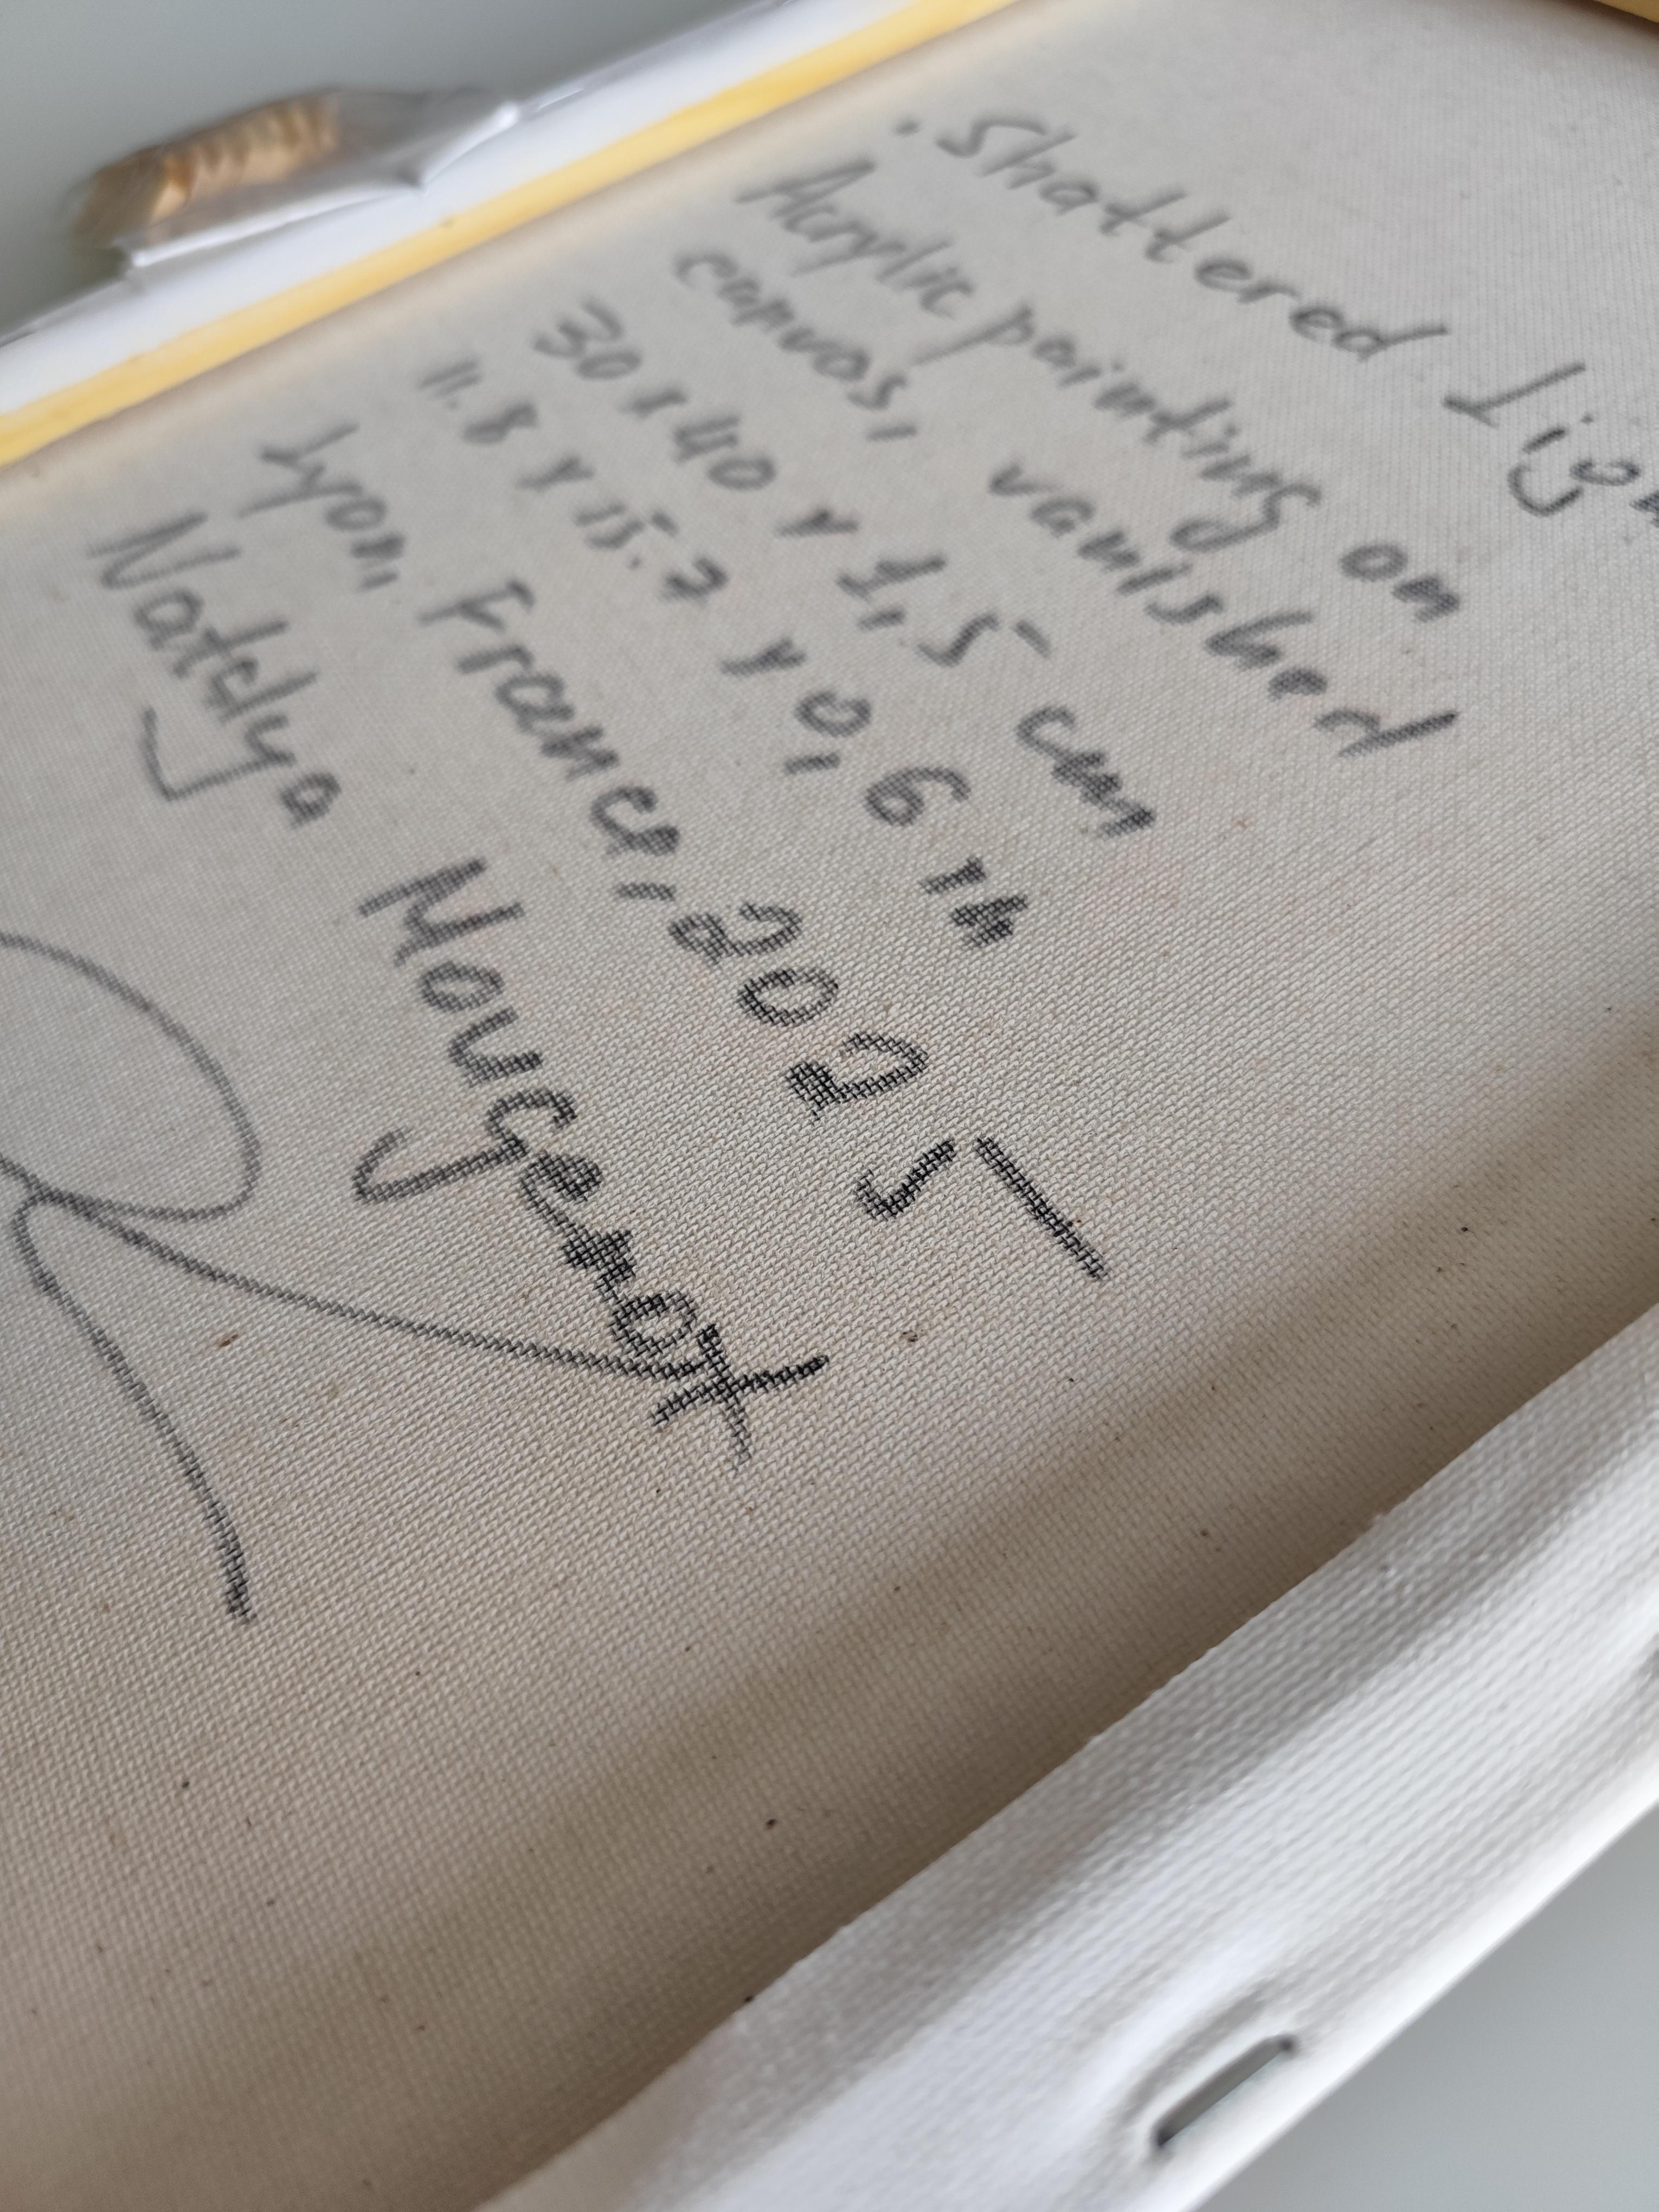 . Shattered Ligh
Acrylic painting on
canvas, vanished
30 x 40 x 1,5 cm
11.8 x 15.7 x 0,6 in
Lyon, France, 2025
Natalya Mougenot